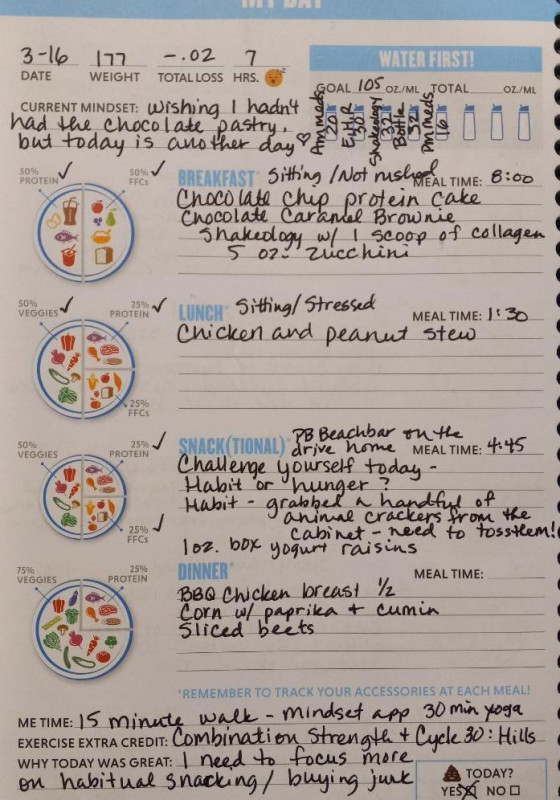 MY DAY
3-16 177 -.02 7
DATE WEIGHT TOTAL LOSS HRS.
WATER FIRST!
GOAL 105 OZ./ML TOTAL OZ./ML
Am meds 20 EHR 30 Shakeology 32 Bottle 32 Pm Meds 16
CURRENT MINDSET: Wishing I hadn't
had the chocolate pastry.
but today is another day
50% PROTEIN ✓ 50% FFCs ✓
BREAKFAST* Sitting/Not rushed
MEAL TIME: 8:00
Chocolate chip protein cake
Chocolate Caramel Brownie
Shakeology w/ 1 scoop of collagen
5 oz- zucchini
50% VEGGIES ✓ 25% PROTEIN ✓
25% FFCs
LUNCH* Sitting/Stressed
MEAL TIME: 1:30
Chicken and peanut stew
50% VEGGIES 25% PROTEIN ✓
25% FFCs ✓
SNACK(TIONAL)* PB Beachbar on the
drive home MEAL TIME: 4:45
Challenge yourself today -
Habit or hunger?
Habit - grabbed a handful of
animal crackers from the
cabinet - need to toss them!
1oz. box yogurt raisins
75% VEGGIES 25% PROTEIN
DINNER* MEAL TIME:
BBQ Chicken breast 1/2
Corn w/ paprika + cumin
Sliced beets
*REMEMBER TO TRACK YOUR ACCESSORIES AT EACH MEAL!
ME TIME: 15 minute walk - mindset app 30 min yoga
EXERCISE EXTRA CREDIT: Combination Strength + Cycle 30: Hills
WHY TODAY WAS GREAT: I need to focus more
on habitual snacking/ buying junk
TODAY?
YES ☒ NO ☐